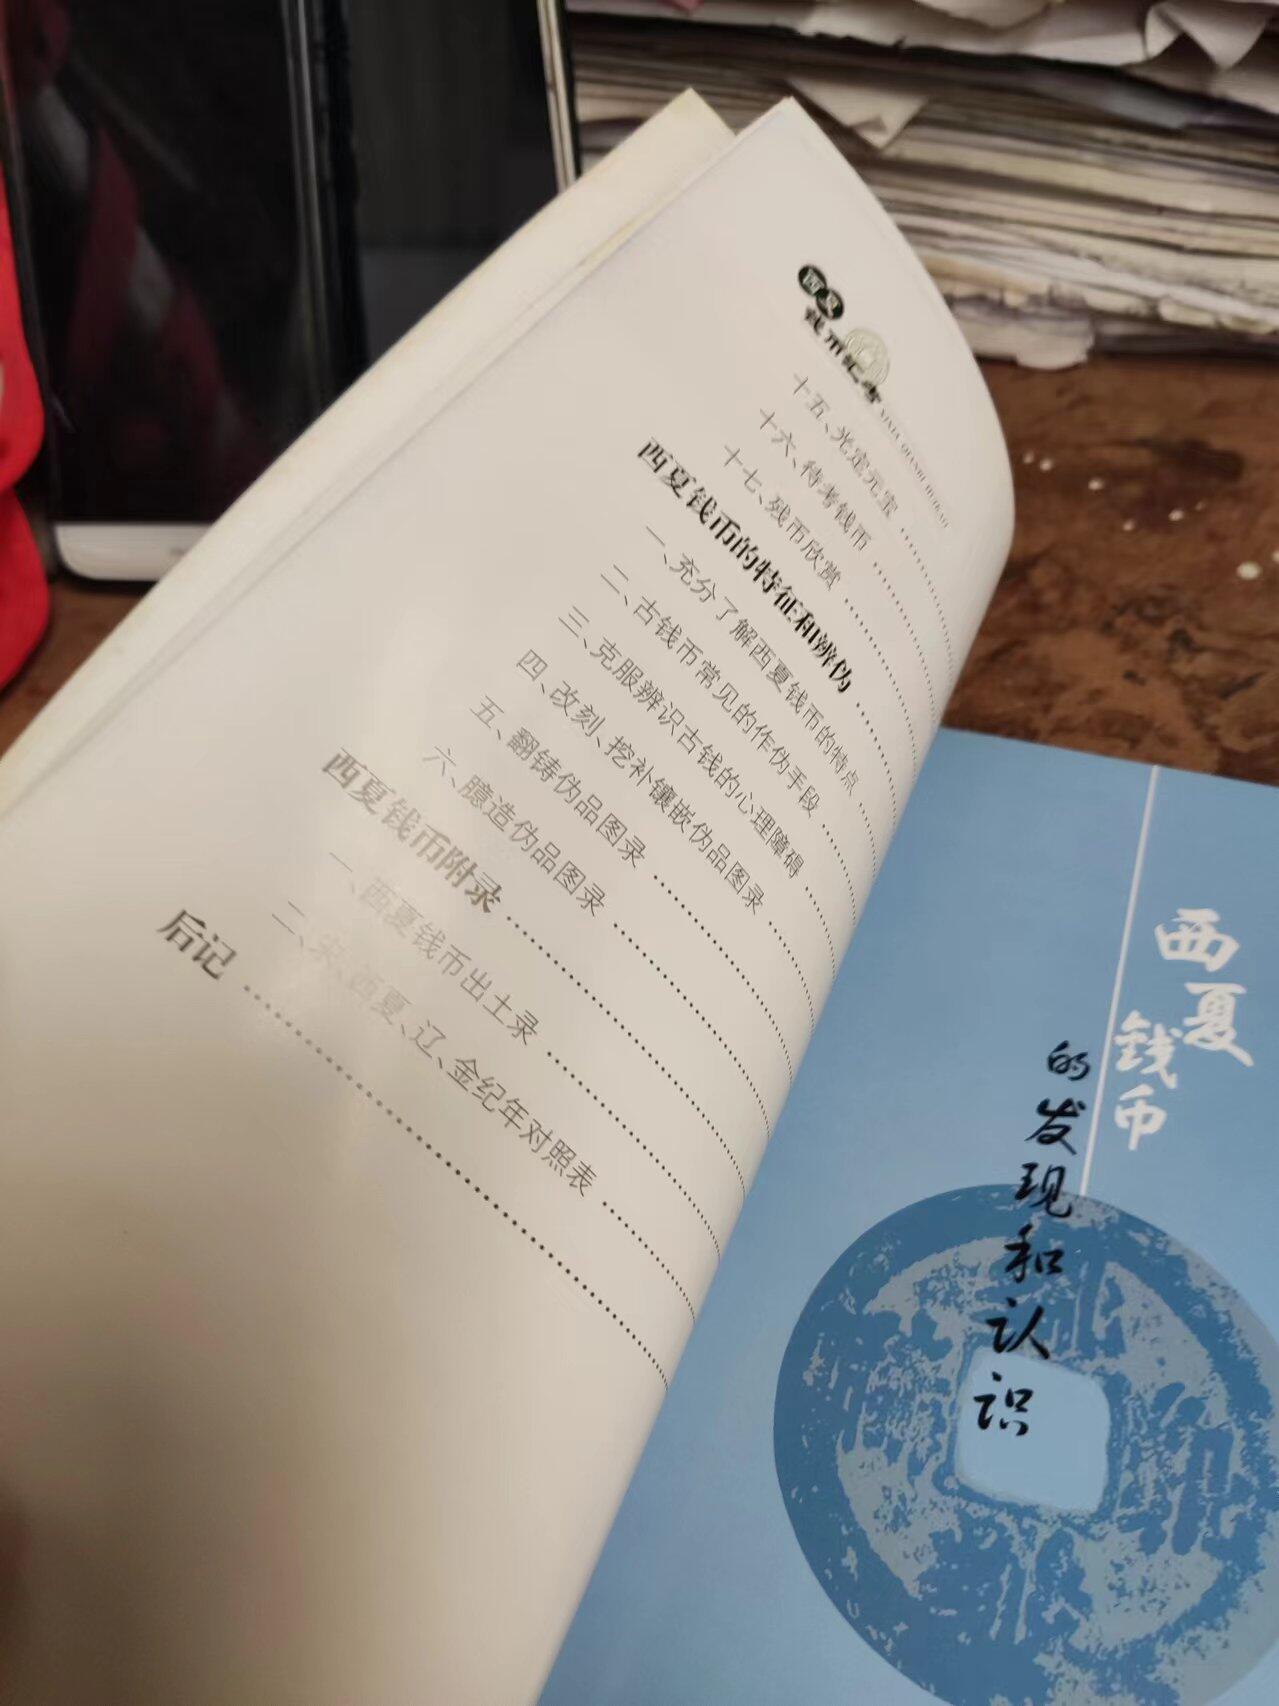 西夏
钱币汇考
XIXIA QIANBI HUIKAO
十五、光定元宝
十六、待考钱币
十七、残币欣赏
西夏钱币的特征和辨伪
一、充分了解西夏钱币的特点
二、古钱币常见的作伪手段
三、克服辨识古钱的心理障碍
四、改刻、挖补镶嵌伪品图录
五、翻铸伪品图录
六、臆造伪品图录
西夏钱币附录
一、西夏钱币出土录
二、宋、西夏、辽、金纪年对照表
后记
西夏
钱币
的发现和认识